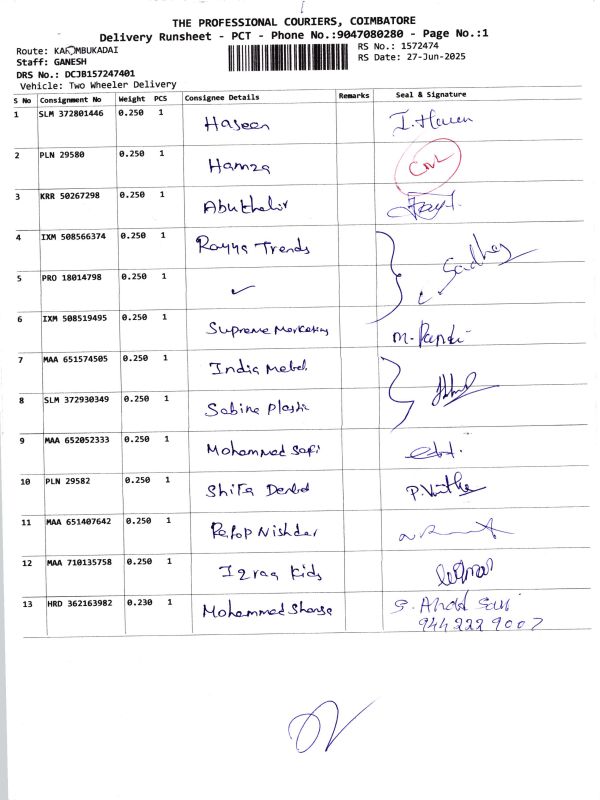 THE PROFESSIONAL COURIERS, COIMBATORE
Delivery Runsheet - PCT - Phone No.:9047080280 - Page No.:1
Route: KARUMBUKADAI
RS No.: 1572474
Staff: GANESH
RS Date: 27-Jun-2025
DRS No.: DCJB157247401
Vehicle: Two Wheeler Delivery
S No Consignment No Weight PCS Consignee Details Remarks Seal & Signature
1 SLM 372801446 0.250 1 Haseen
2 PLN 29580 0.250 1 Hamza
3 KRR 50267298 0.250 1
4 IXM 508566374 0.250 1 Rayya Trends
5 PRO 18014798 0.250 1 Sadhay
6 IXM 508519495 0.250 1 Supreme Marketing M. Pandi
7 MAA 651574505 0.250 1 India Metal
8 SLM 372930349 0.250 1 Sabina Plastic
9 MAA 652052333 0.250 1 Mohammed Safi
10 PLN 29582 0.250 1 Shifa Dental
11 MAA 651407642 0.250 1
12 MAA 710135758 0.250 1 Iqraa Kids
13 HRD 362163982 0.230 1 Mohammed
9442229007